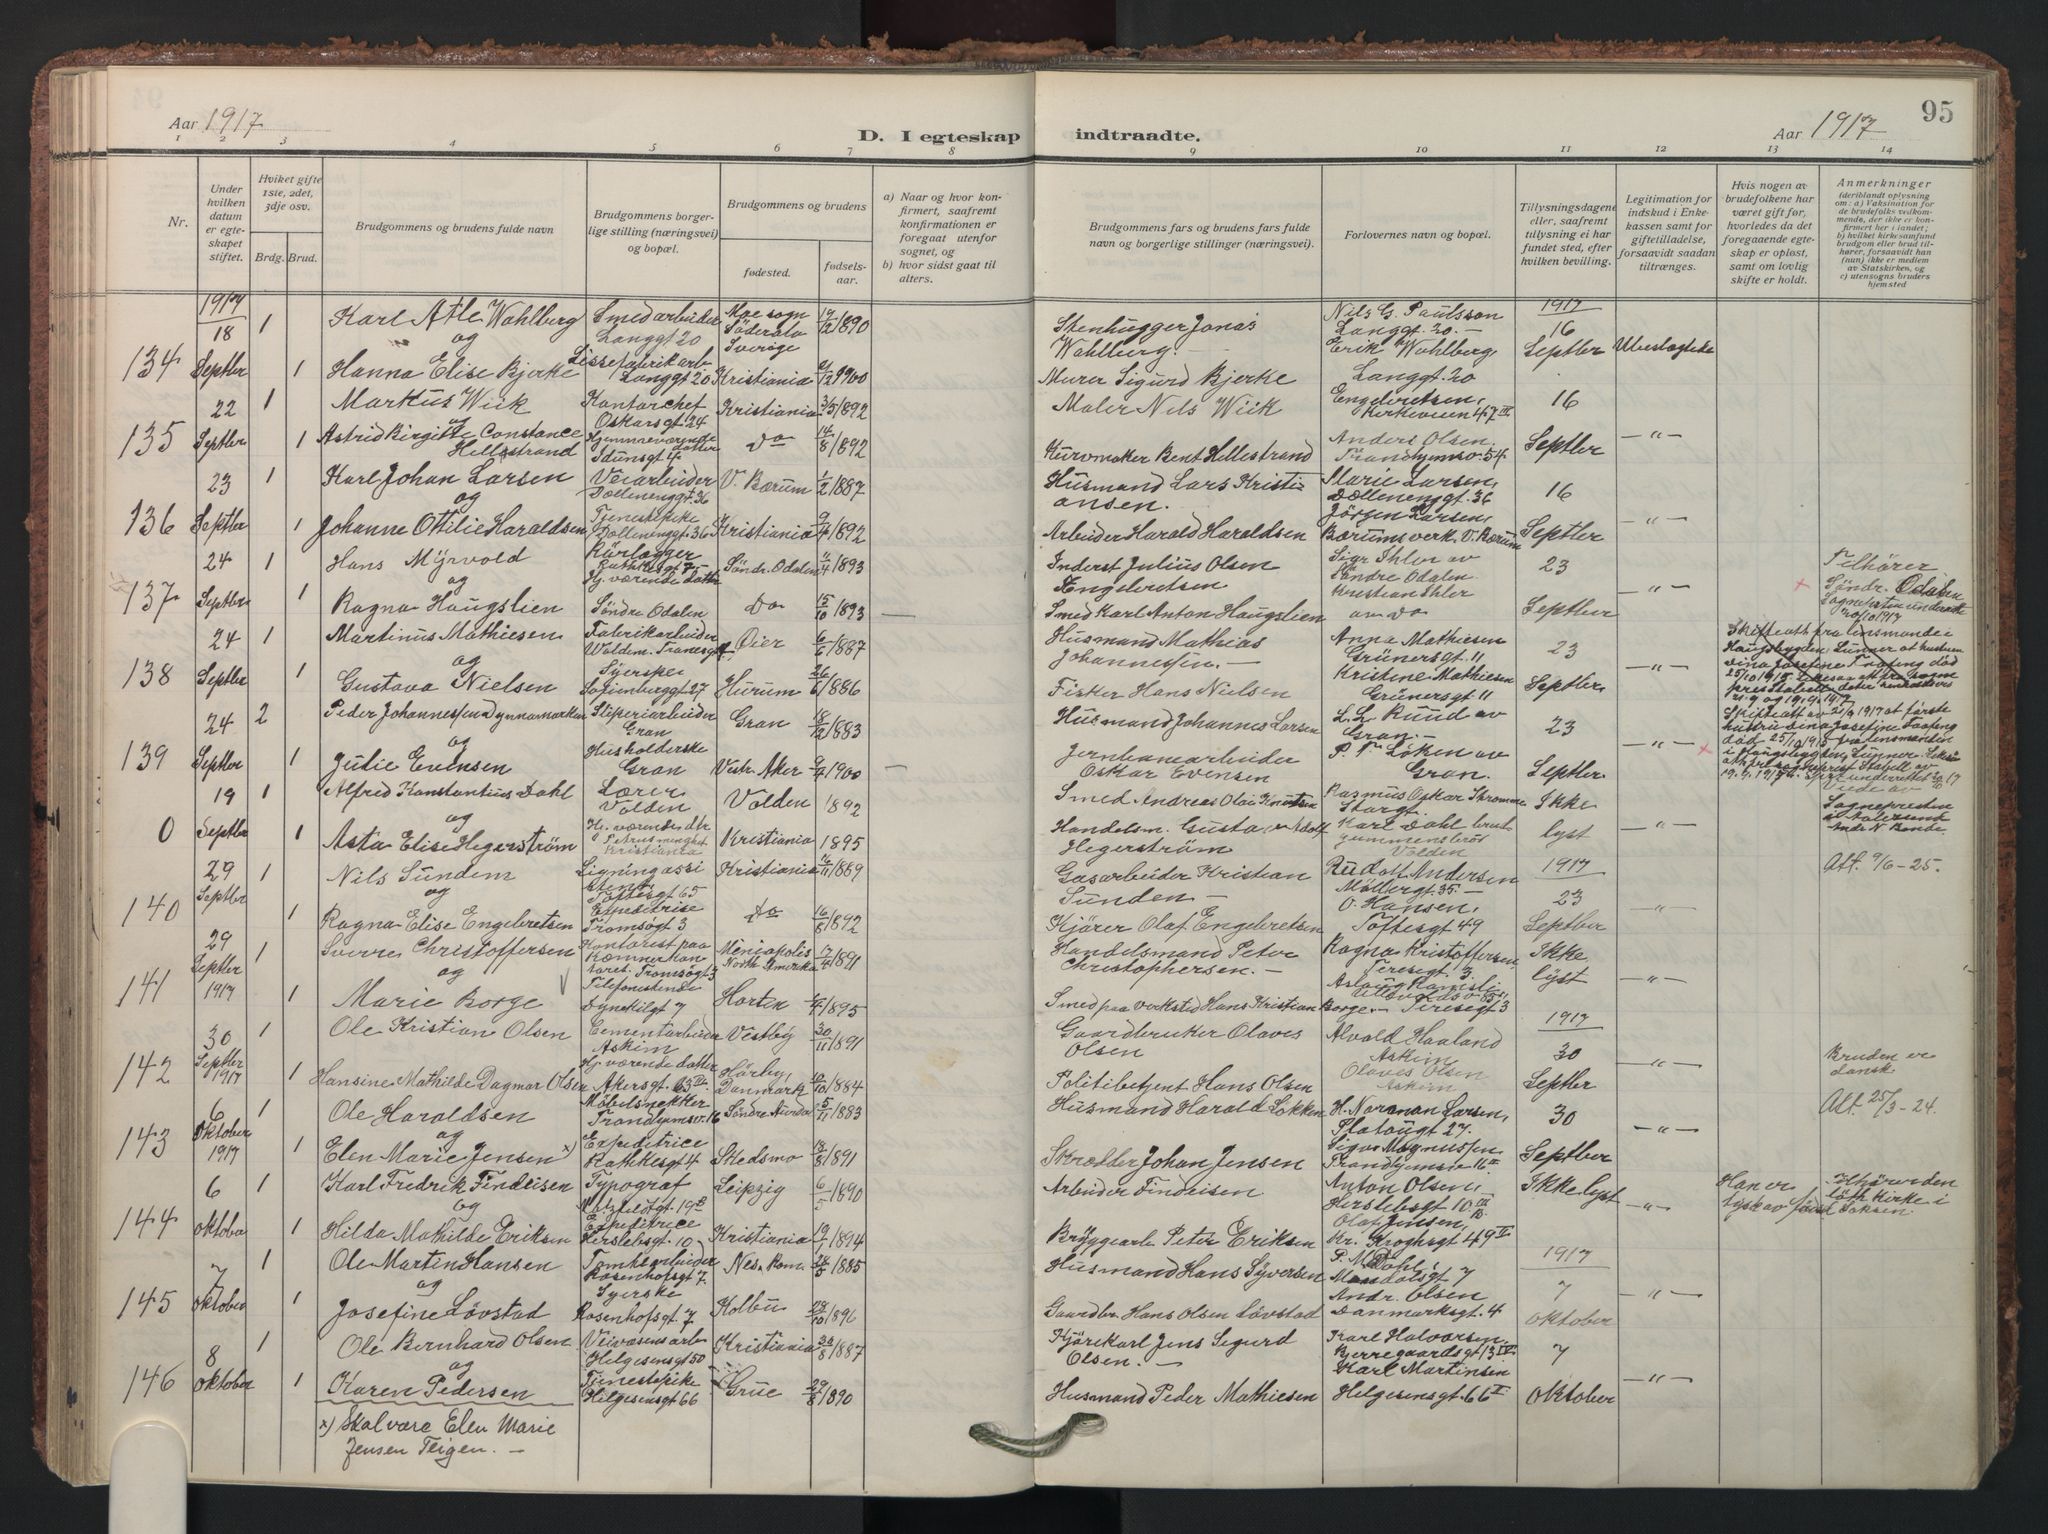 95
Aar 1917
D. I egteskap indtraadte.
Aar 1917
1 2 3 4 5 6 7 8 9 10 11 12 13 14
Nr.
Under hvilken datum er egteskapet stiftet.
Hviket gifte 1ste, 2det, 3dje osv.
Brdg. Brud.
Brudgommens og brudens fulde navn
Brudgommens borgerlige stilling (næringsvei) og bopæl.
Brudgommens og brudens
fødested.
fødselsaar.
a) Naar og hvor konfirmert, saafremt konfirmationen er foregaat utenfor sognet, og
b) hvor sidst gaat til alters.
Brudgommens fars og brudens fars fulde navn og borgerlige stillinger (næringsvei).
Forlovernes navn og bopæl.
Tillysningsdagene eller, saafremt tillysning ei har fundet sted, efter hvilken bevilling.
Legitimation for indskud i Enkekassen samt for giftetilladelse, forsaavidt saadan tiltrænges.
Hvis nogen av brudefolkene har været gift før, hvorledes da det foregaaende egteskap er opløst, samt om lovlig skifte er holdt.
Anmerkninger
(deriblandt oplysning om: a) Vaksination for de brudefolks velkommende, der ikke er konfirmert her i landet; b) hvilket kirkesamfund brudgom eller brud tilhører, forsaavidt han (hun) ikke er medlem av Statskirken, og c) utensogns bruders hjemsted
134 1917 18 Septber 1 1
Karl Atle Wahlberg
og
Hanna Elise Bjerke
Smedarbeider
Langgt 20
Langgt 20
Moe sogn
Söderala
Sverige
19/12 1890
Kristiania
1900
Stenhugger Jonas
Wahlberg.
Murer Sigurd Bjerke
Nils G. Paulsson
Langgt. 20.
Erik Wahlberg,
Langgt. 20
1917
16
Septber
Ubeslegtede
135 22 Septber 1 1
Markus Wiik
og
Astrid Birgitte Constance
Hellestrand
Kontorchef
Oskarsgt. 24
Hjemmeværende
datter
Idunsgt 4
Kristiania 3/5 1892
Do 14/8 1892
Maler Nils Wiik
Kurvmaker Bent Hellestrand
Engebretsen,
Kirkeveien 47 III
Anders Olsen.
Trondhjemsv. 54.
16
Septber
—"—
136 23 Septber 1 1
Karl Johan Larsen
og
Johanne Ottilie Haraldsen
Veiarbeider
Dællenenggt. 36
Tjenestepike
Dællenenggt. 36
V. Bærum 1/2 1887
Kristiania 9/7 1892
Husmand Lars Kristiansen.
Arbeider Harald Haraldsen
Marie Larsen,
Dællenenggt. 36
Jörgen Larsen,
Bærums verk. V. Bærum
16
Septber
—"—
137 24 Septber 1 1
Hans Myrvold
og
Ragna Haugslien
Rörlægger
Rathkesgt 7
Hj. værende datter
Söndre Odalen
Söndr. Odalen 11/4 1893
Do 15/10 1893
Inderst Julius Olsen
Engebretsen
Smed Karl Anton Haugslien
Sigr. Ihler av
Söndre Odalen.
Kristian Ihler
av Do
23
Septber
—"—
Tilhører
Söndr. Odalen
Sognepresten underrettet
20/10 1917
138 24 Septber 1 1
Martinus Mathiesen
og
Gustava Nielsen
Fabrikarbeider
Syerske
Sofienberggt. 27
Öier 6/6 1887
Hurum 26/6 1886
Husmand Mathias
Johannessen.
Fisker Hans Nielsen
Anna Mathiesen
Grünersgt. 11
Kristine Mathiesen
Grünersgt. 11
23
Septber
—"—
139 24 Septber 2 1
Peder Johannessen Dynnamarken
og
Julie Evensen
Sliperiarbeider
Gran
Husholderske
Gran
Gran 18/12 1883
Vestr. Aker 9/7 1900
Husmand Johannes Larsen
Jernbanearbeider
Oskar Evensen
L. L. Ruud av
Gran.
P. T. Löken av
Gran.
23
Septber
—"—
Skifteatt av 21/9 1917 at første
hustru Dina Josefine
død 25/10 1915 fra lensmanden
i Haugsbygden, Lunner.
0 19 Septber 1 1
Alfred Konstantius Dahl
og
Asta Elise Hegerström
Lærer
Volden
Hj. værende dtr
Kristiania
Volden 1892
Kristiania 1895
Smed Andreas Olai Knutsen
Handelsm. Gustav Adolf
Hegerström
Rasmus Oskar Skromme
Storgt.
Karl Dahl brudgummens bror
Volden
Ikke
lyst
—"—
Viede av
Sognepresten
i Aalesund
Ande N. Bonde
140 29 Septber 1 1
Nils Sundem
og
Ragna Elise Engebretsen
Ligningsassistent
Toftesgt 65
Expeditrise
Tromsögt 3
Kristiania 1889
Do 16/8 1892
Gasarbeider Kristian
Sunden.
Kjörer Olaf Engebretsen
Rudolf Andersen
Möllergt. 35.
O. Hansen,
Toftesgt 49
1917
23
Septber
—"—
Att. 9/6 - 25.
141 29 Septber 1917 1 1
Sverre Christoffersen
og
Marie Borge
Kontorist paa
Kæmnerkontoret. Tromsögt 3
Telefonistinde
Dynekilgt 7
Menneapolis
North Amerika
17/4 1891
Horten 1895
Handelsmand Peter
Christophersen.
Smed paa verksted Hans Kristian Borge.
Ragna Kristoffersen
Teresegt 3.
Ullevoldsv. 85
Teresegt 3
Ikke
lyst
—"—
142 30 Septber 1917 1 1
Ole Kristian Olsen
Hansine Mathilde Dagmar Olsen
Cementarbeider
Askim
Hj. værende datter
Akersgt. 63 IV
Vestby 30/11 1891
Hörby,
Danmark 10/10 1884
Gaardbruker Olaves
Olsen
Politibetjent Hans Olsen
Alvold Haaland
Askim
Olaves Olsen
Askim
1917
30
Septber
—"—
Bruden er
dansk.
143 6 Oktober 1917 1 1
Ole Haraldsen
og
Elen Marie Jensen x)
Möbelsnekker
Trondhjemsv. 16
Expeditrice
Rathkesgt 4
Söndre Aurdal 5/11 1883
Skedsmo 13/8 1891
Husmand Harald Lökken
Skrædder Johan Jensen
H. Norman Larsen,
Platougt 27.
Sigur Magnussen
Trondhjemsvei 16 II
30
Septber
—"—
Att. 25/3 - 24.
144 6 Oktober 1 1
Karl Fredrik Findeisen
og
Hilda Mathilde Eriksen
Typograf
Hatzfeldtgt. 19 B
Expeditrice
Herslebsgt. 10
Leipzig 6/5 1890
Kristiania 19/1 1894
Arbeider Findeisen
Bryggearb. Peter Eriksen
Anton Olsen,
Herslebsgt 10 III
Olaf Jensen,
Kr. Kroghsgt 49 II
Ikke lyst
—"—
Han er
tysk av fødsel
Tilhører den
luth kirke i
Saksen.
145 7 Oktober 1 1
Ole Martin Hansen
og
Josefine Lövstad
Tomtearbeider
Rosenhofsgt 7.
Syerske
Rosenhofsgt. 7
Nes, Rom. 24/5 1885
Kolbu 28/10 1896
Husmand Hans Syversen
Gaardbr. Hans Olsen Lövstad
P. M. Dahl,
Mandalsgt 7
Andr. Olsen
Danmarksgt. 4
1917
7
Oktober
—"—
146 8 Oktober 1 1
Ole Bernhard Olsen
og
Karen Pedersen
Veivæsensarb.
Helgesensgt 50
Tjenestepike
Helgesensgt 66
Kristiania 30/8 1887
Grue 29/8 1890
Kjörekarl Jens Sigurd
Olsen.
Husmand Peder Mathiesen
Karl Halvorsen
Bjerregaardsgt 13 IV
Karl Martinsen
Helgesensgt. 66 I
7
Oktober
—"—
x) Skal være Elen Marie
Jensen Teigen.